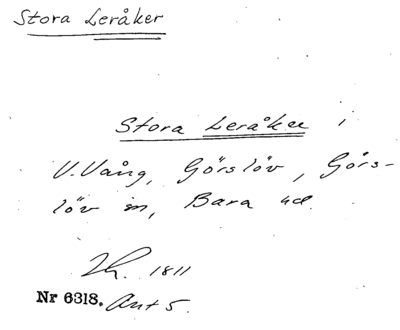 Stora Leråker
Stora Leråker i
V. Vång, Görslöv, Görs-
löv sn, Bara hd.
Zh. 1811
Nr 6318. Akt 5.